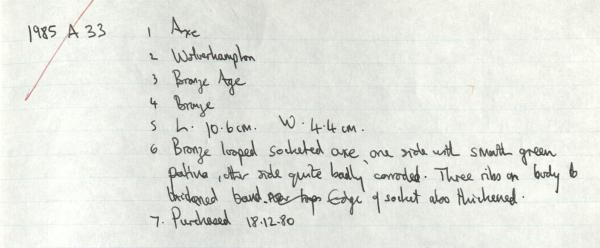 1985 A 33 1 Axe
2 Wolverhampton
3 Bronze Age
4 Bronze
5 L. 10.6cm. W. 4.4cm.
6 Bronze looped socketed axe, one side with smooth green
patina, other side quite badly corroded. Three ribs on body to
thickened band. Edge of socket also thickened.
7. Purchased 18.12.80